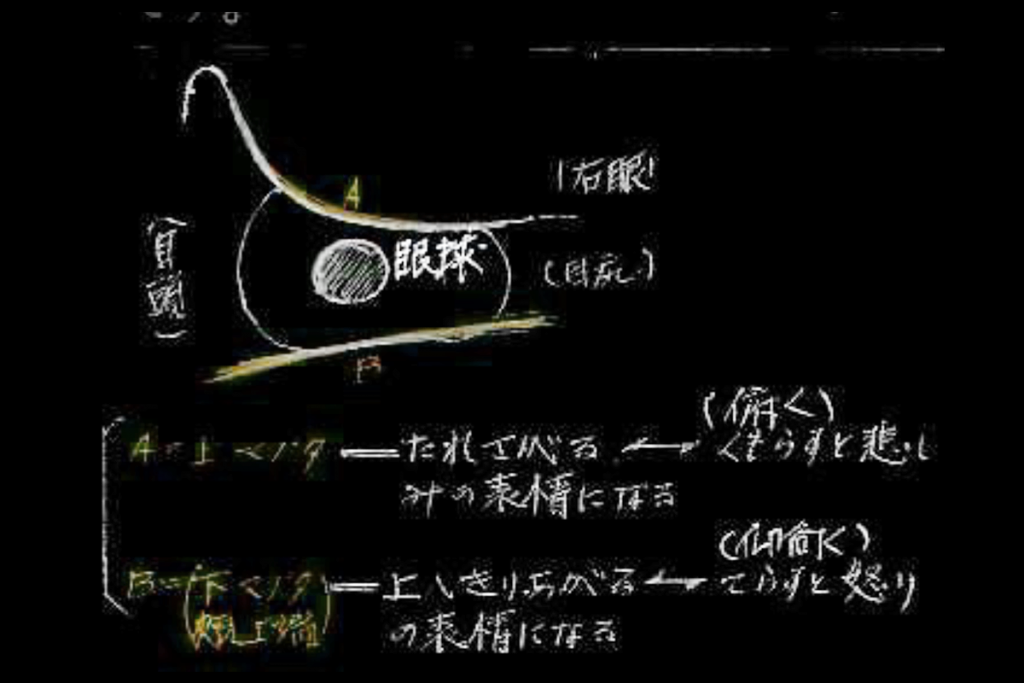 A
(右眼)
(目頭)
眼球
(目尻)
B
(俯く)
A=上マブタ ― たれさがる ←→ くもらすと悲し
みの表情になる
(仰向く)
B=(下マブタ) ― 上へきりあがる ←→ てらすと怒り
の表情になる